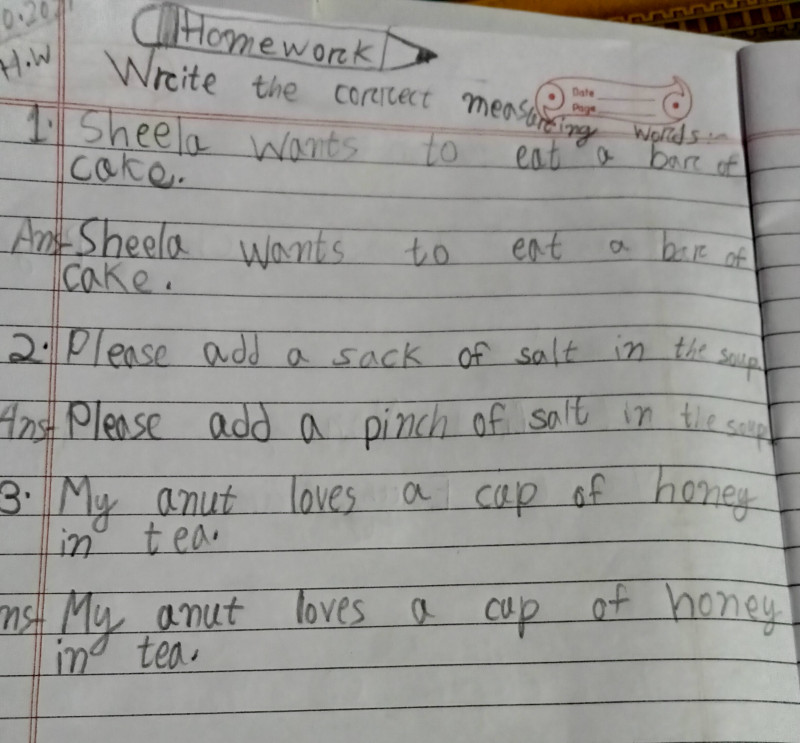 Homework
H.W
Write the correct measuring words
Date
Page
1. Sheela wants to eat a bar of
cake.
Ans Sheela wants to eat a bar of
cake.
2. Please add a sack of salt in the soup
Ans Please add a pinch of salt in the soup
3. My anut loves a cup of honey
in tea.
Ans My anut loves a cup of honey
in tea.